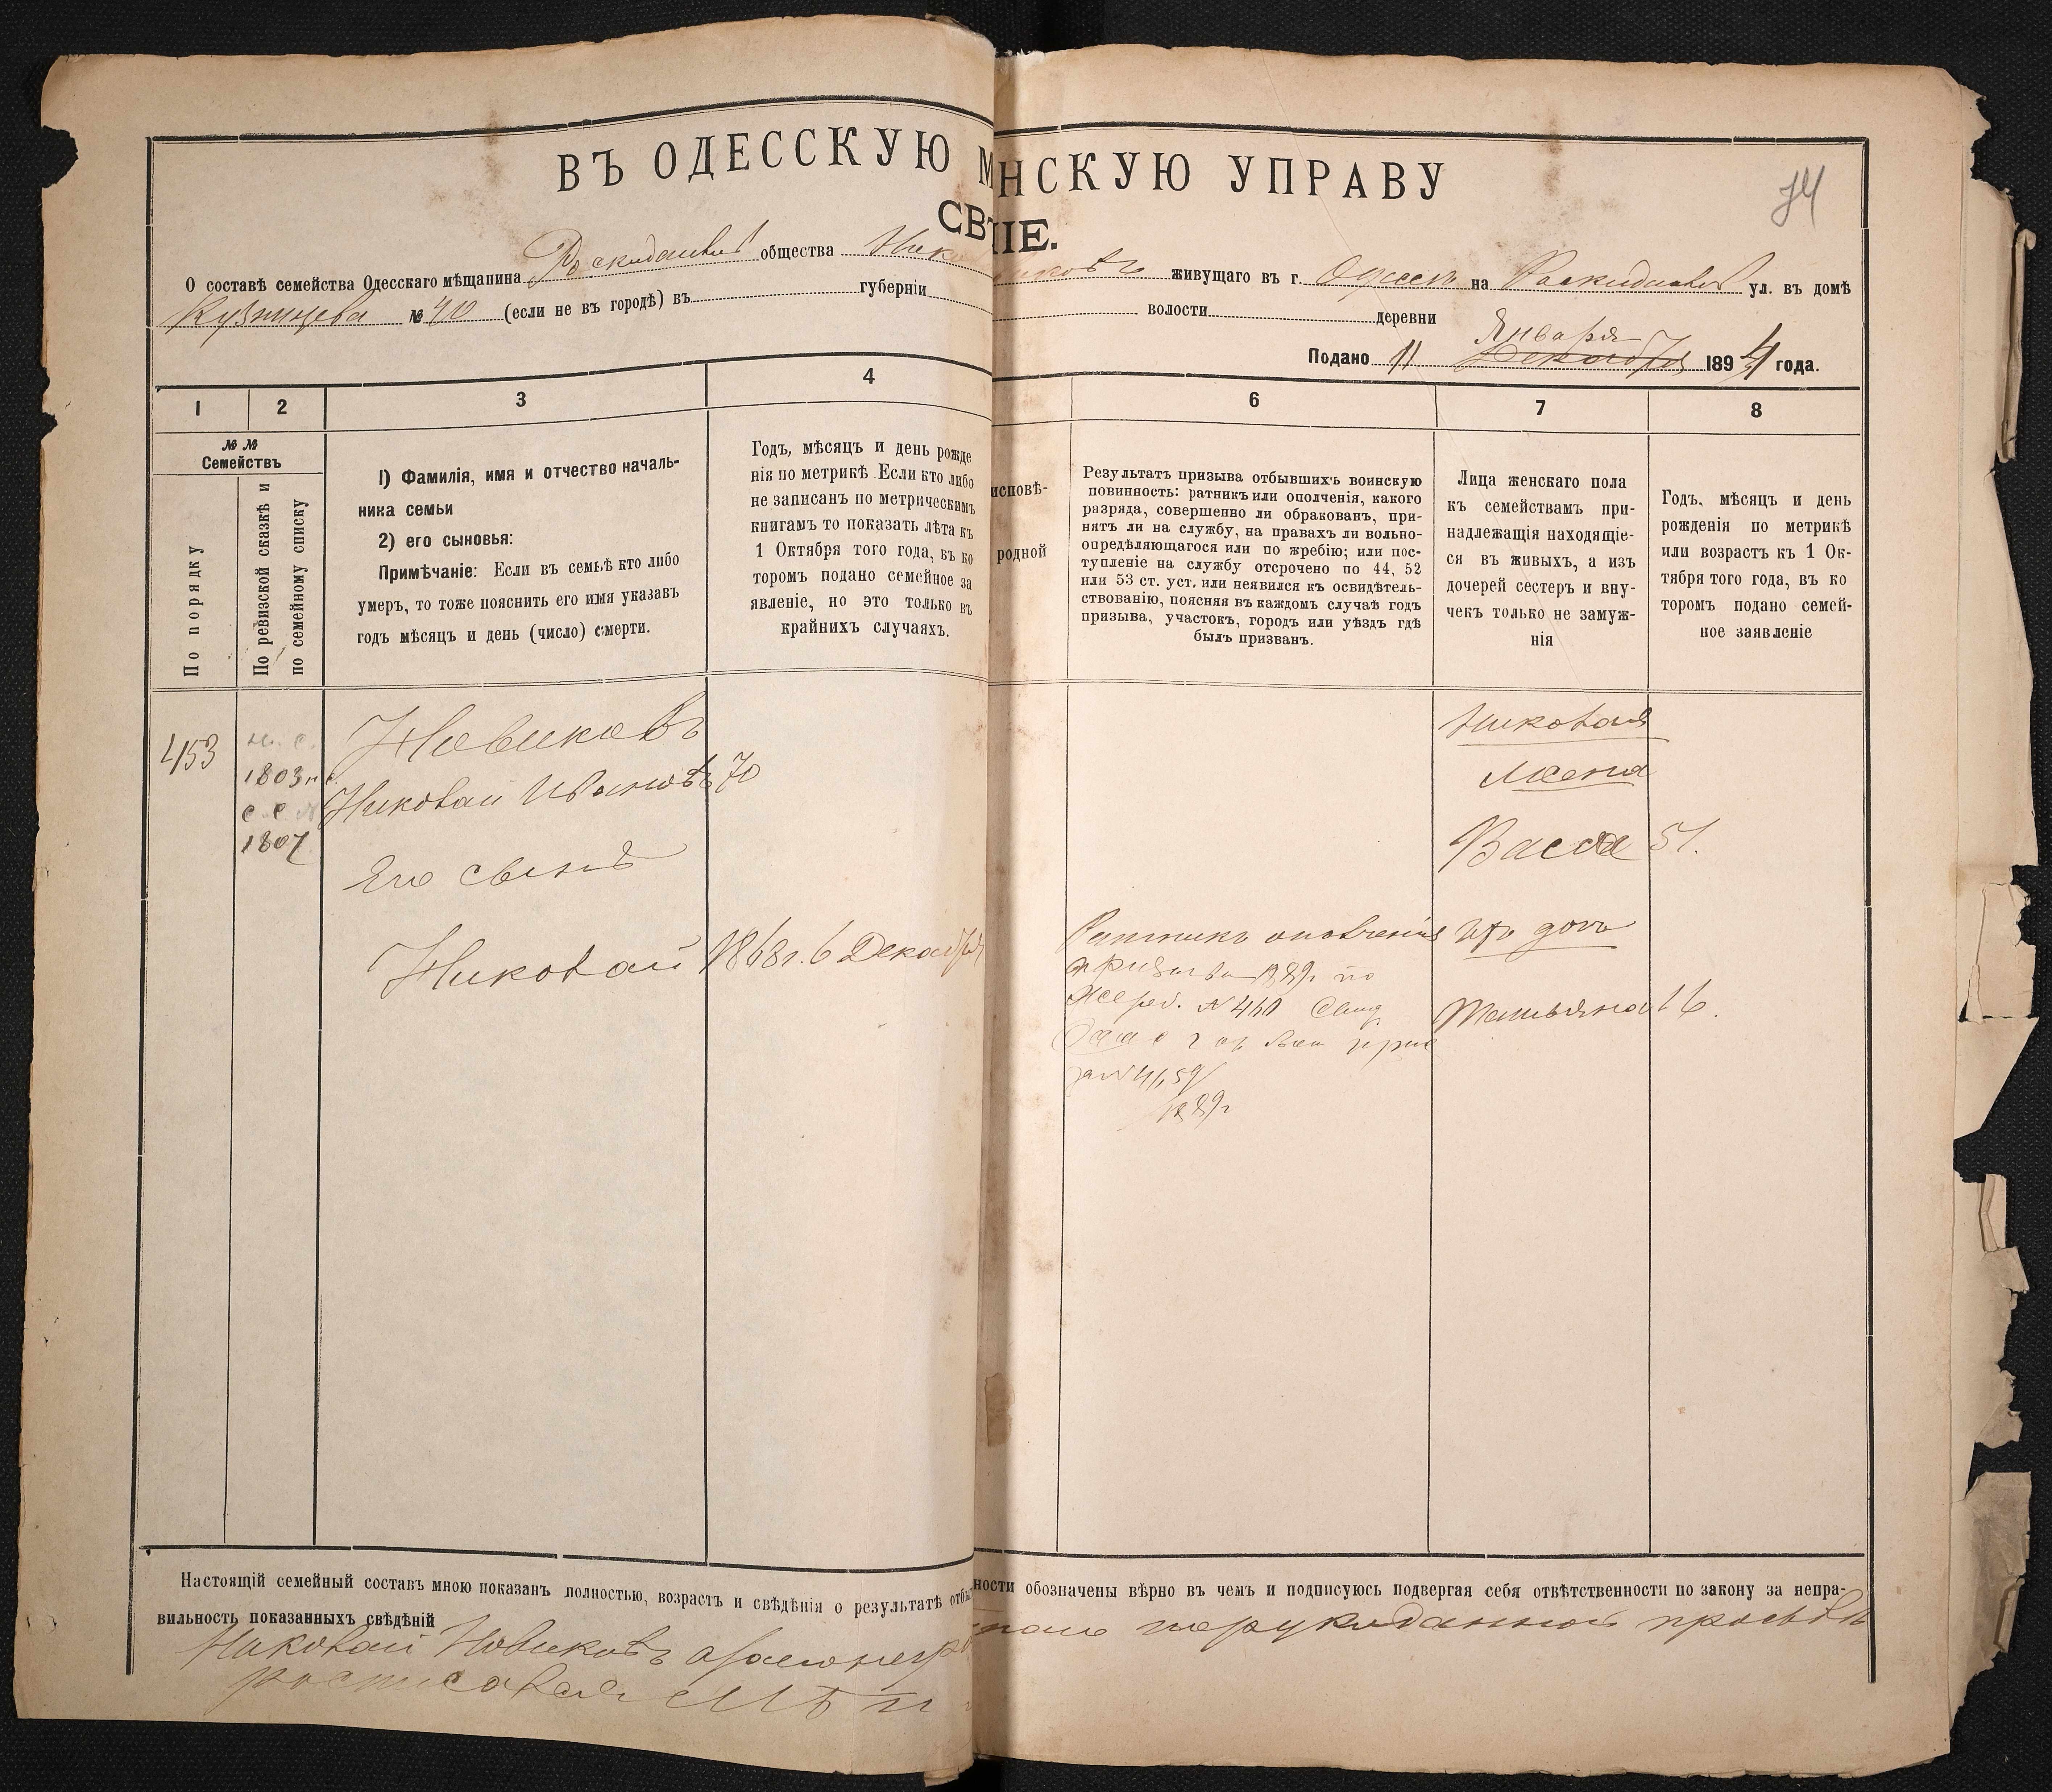 ВЪ ОДЕССКУЮ М НСКУЮ УПРАВУ
СВѢ НІЕ.
74
О составѣ семейства Одесскаго мѣщанина Роскидаивой общества Нико иковъ живущаго въ г. Одессѣ на Раскидаивой ул. въ домѣ
Кузницева № 40 (если не въ городѣ) въ губерніи волости деревни
Января
Подано 11 Декабря 1894 года.
1 2 3 4 6 7 8
№№
Семействъ
По порядку
По ревизской сказкѣ и
по семейному списку
1) Фамилія, имя и отчество началь-
ника семьи
2) его сыновья:
Примѣчаніе: Если въ семьѣ кто либо
умеръ, то тоже пояснить его имя указавъ
годъ мѣсяцъ и день (число) смерти.
Годъ, мѣсяцъ и день рожде
нія по метрикѣ. Если кто либо
не записанъ по метрическимъ
книгамъ то показать лѣта къ
1 Октября того года, въ ко
торомъ подано семейное за
явленіе, но это только въ
крайнихъ случаяхъ.
исповѣ-
родной
Результатъ призыва отбывшихъ воинскую
повинность: ратникъ или ополченія, какого
разряда, совершенно ли обракованъ, при-
нятъ ли на службу, на правахъ ли вольно-
опредѣляющагося или по жребію; или пос-
тупленіе на службу отсрочено по 44, 52
или 53 ст. уст. или неявился къ освидѣтель-
ствованію, поясняя въ каждомъ случаѣ годъ
призыва, участокъ, городъ или уѣздъ гдѣ
былъ призванъ.
Лица женскаго пола
къ семействамъ при-
надлежащія находящіе-
ся въ живыхъ, а изъ
дочерей сестеръ и вну-
чекъ только не замуж-
нія
Годъ, мѣсяцъ и день
рожденія по метрикѣ
или возрастъ къ 1 Ок-
тября того года, въ ко
торомъ подано семей-
ное заявленіе
453
н. с.
1803
с. с.
1807
Новиковъ
Николай Ивановъ 70
Его сынъ
Николай 1868г. 6 Декабря
Ратникъ ополченія
призыва 1889г по
Жереб. № 460 Свид
за № 4159/
1889г
Николая
Жена
Васса 51.
Его дочь
Татьяна 16.
Настоящій семейный составъ мною показанъ полностью, возрастъ и свѣдѣнія о результатѣ отбы ности обозначены вѣрно въ чемъ и подписуюсь подвергая себя отвѣтственности по закону за непра-
вильность показанныхъ свѣдѣній
Николай Новиковъ а рукоданной прозьбѣ
росписался